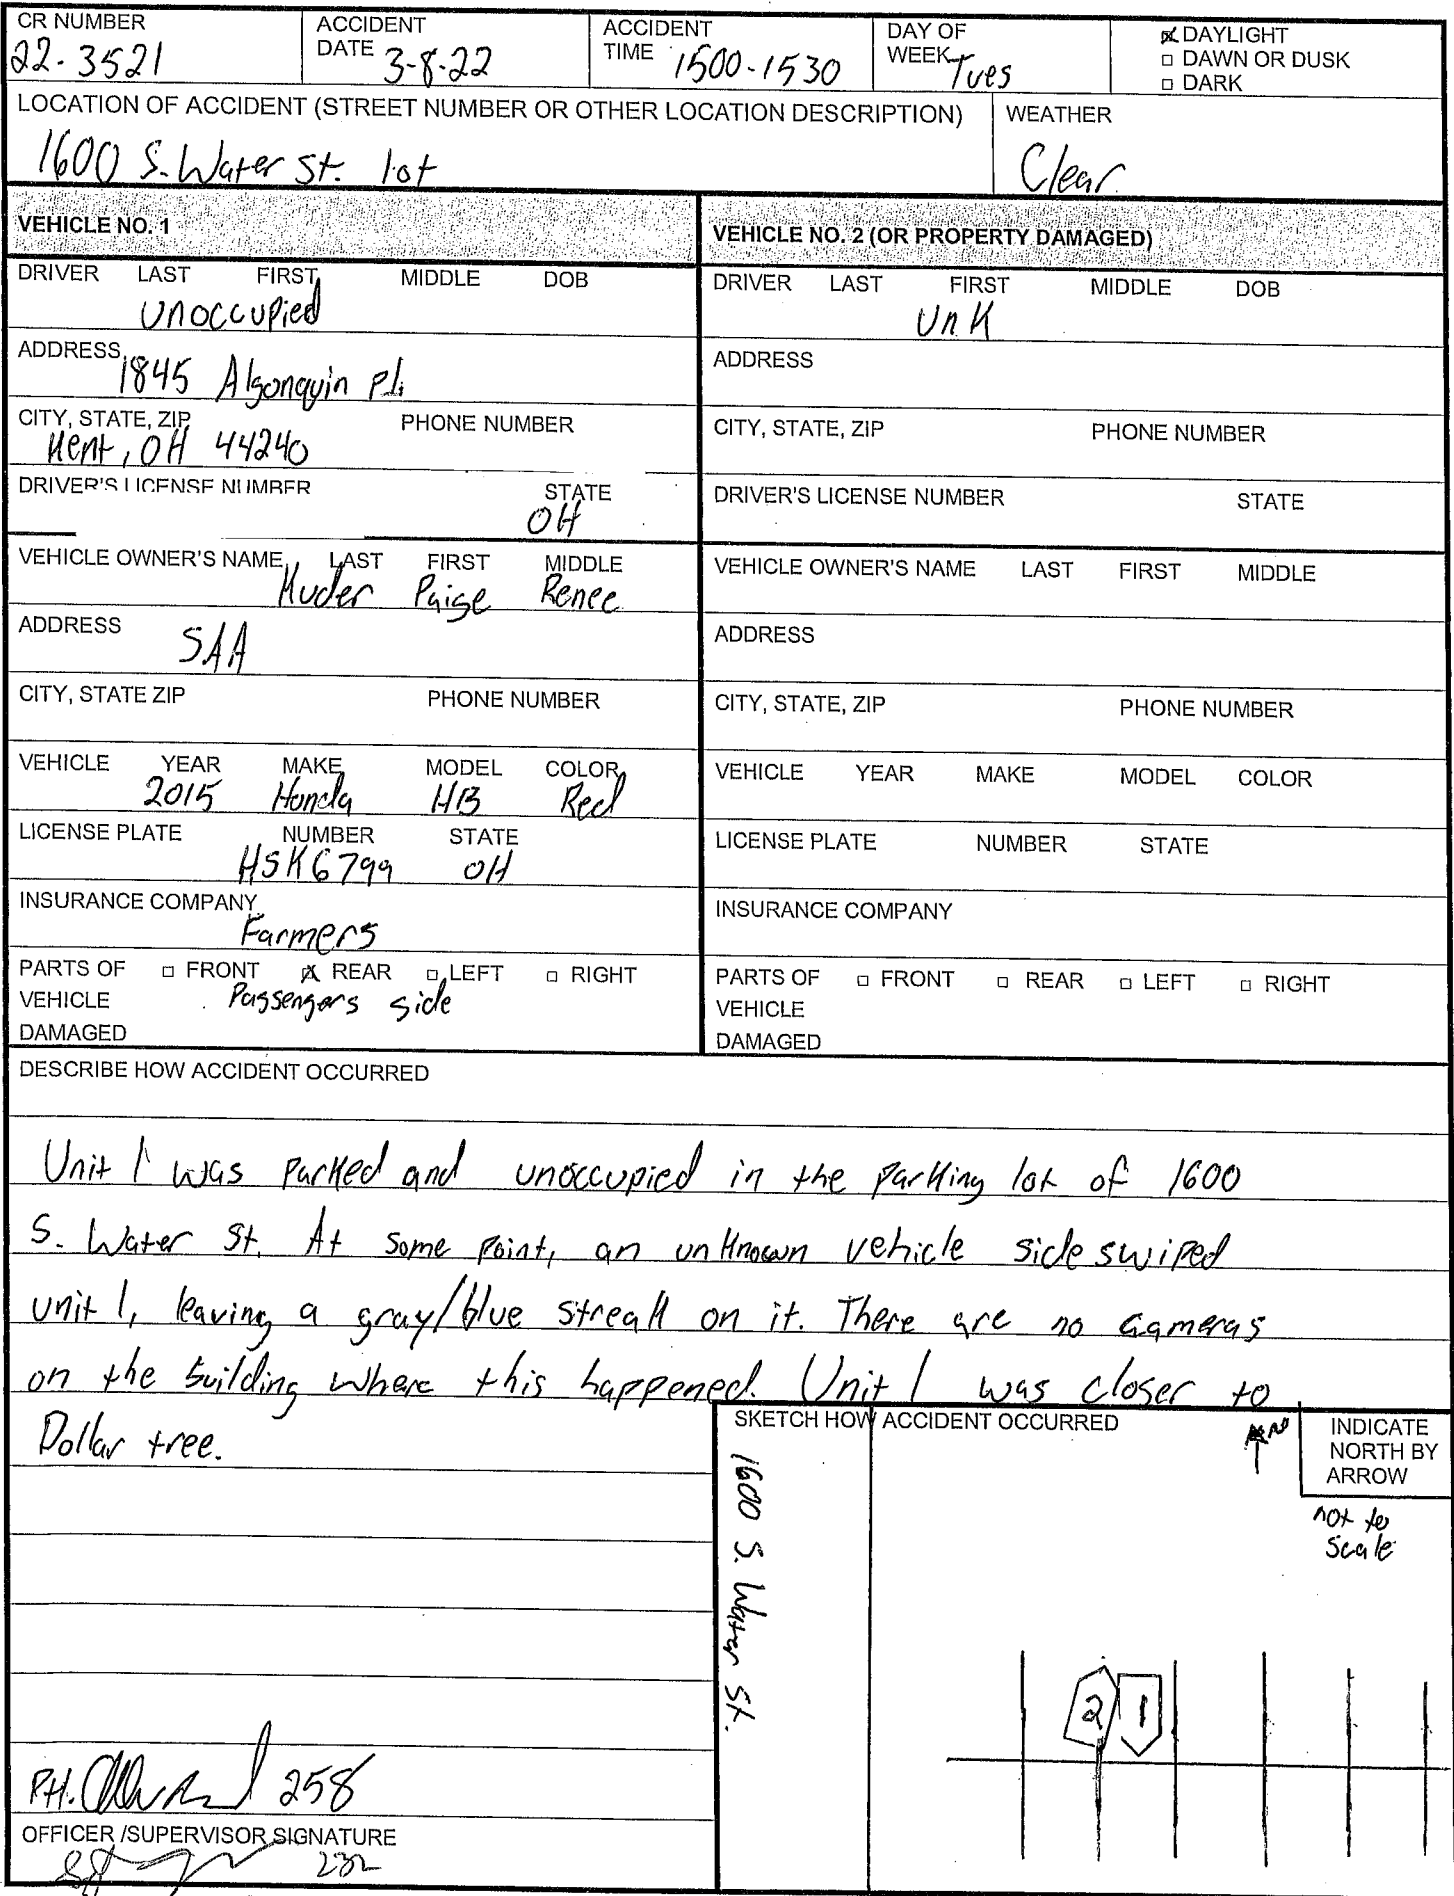 CR NUMBER ACCIDENT DATE ACCIDENT TIME DAY OF WEEK
22-3521 3-8-22 1500-1530 Tues
☒ DAYLIGHT
□ DAWN OR DUSK
□ DARK
LOCATION OF ACCIDENT (STREET NUMBER OR OTHER LOCATION DESCRIPTION) WEATHER
1600 S. Water St. lot Clear
VEHICLE NO. 1
DRIVER LAST FIRST MIDDLE DOB
unoccupied
ADDRESS 1845 Algonquin Pl.
CITY, STATE, ZIP PHONE NUMBER
Kent, OH 44240
DRIVER'S LICENSE NUMBER STATE
OH
VEHICLE OWNER'S NAME LAST FIRST MIDDLE
Kuder Paige Renee
ADDRESS SAA
CITY, STATE ZIP PHONE NUMBER
VEHICLE YEAR MAKE MODEL COLOR
2015 Honda HB Red
LICENSE PLATE NUMBER STATE
HSK6799 OH
INSURANCE COMPANY
Farmers
PARTS OF □ FRONT ☒ REAR □ LEFT □ RIGHT
VEHICLE Passengers side
DAMAGED
VEHICLE NO. 2 (OR PROPERTY DAMAGED)
DRIVER LAST FIRST MIDDLE DOB
UnK
ADDRESS
CITY, STATE, ZIP PHONE NUMBER
DRIVER'S LICENSE NUMBER STATE
VEHICLE OWNER'S NAME LAST FIRST MIDDLE
ADDRESS
CITY, STATE, ZIP PHONE NUMBER
VEHICLE YEAR MAKE MODEL COLOR
LICENSE PLATE NUMBER STATE
INSURANCE COMPANY
PARTS OF □ FRONT □ REAR □ LEFT □ RIGHT
VEHICLE
DAMAGED
DESCRIBE HOW ACCIDENT OCCURRED
Unit 1 was parked and unoccupied in the parking lot of 1600
S. Water St. At some point, an unknown vehicle sideswiped
unit 1, leaving a gray/blue streak on it. There are no cameras
on the building where this happened. Unit 1 was closer to
Dollar tree.
Ptl. 258
OFFICER /SUPERVISOR SIGNATURE
Sgt 232
SKETCH HOW ACCIDENT OCCURRED
N
INDICATE
NORTH BY
ARROW
not to
scale
1600 S. Water St.
2 1